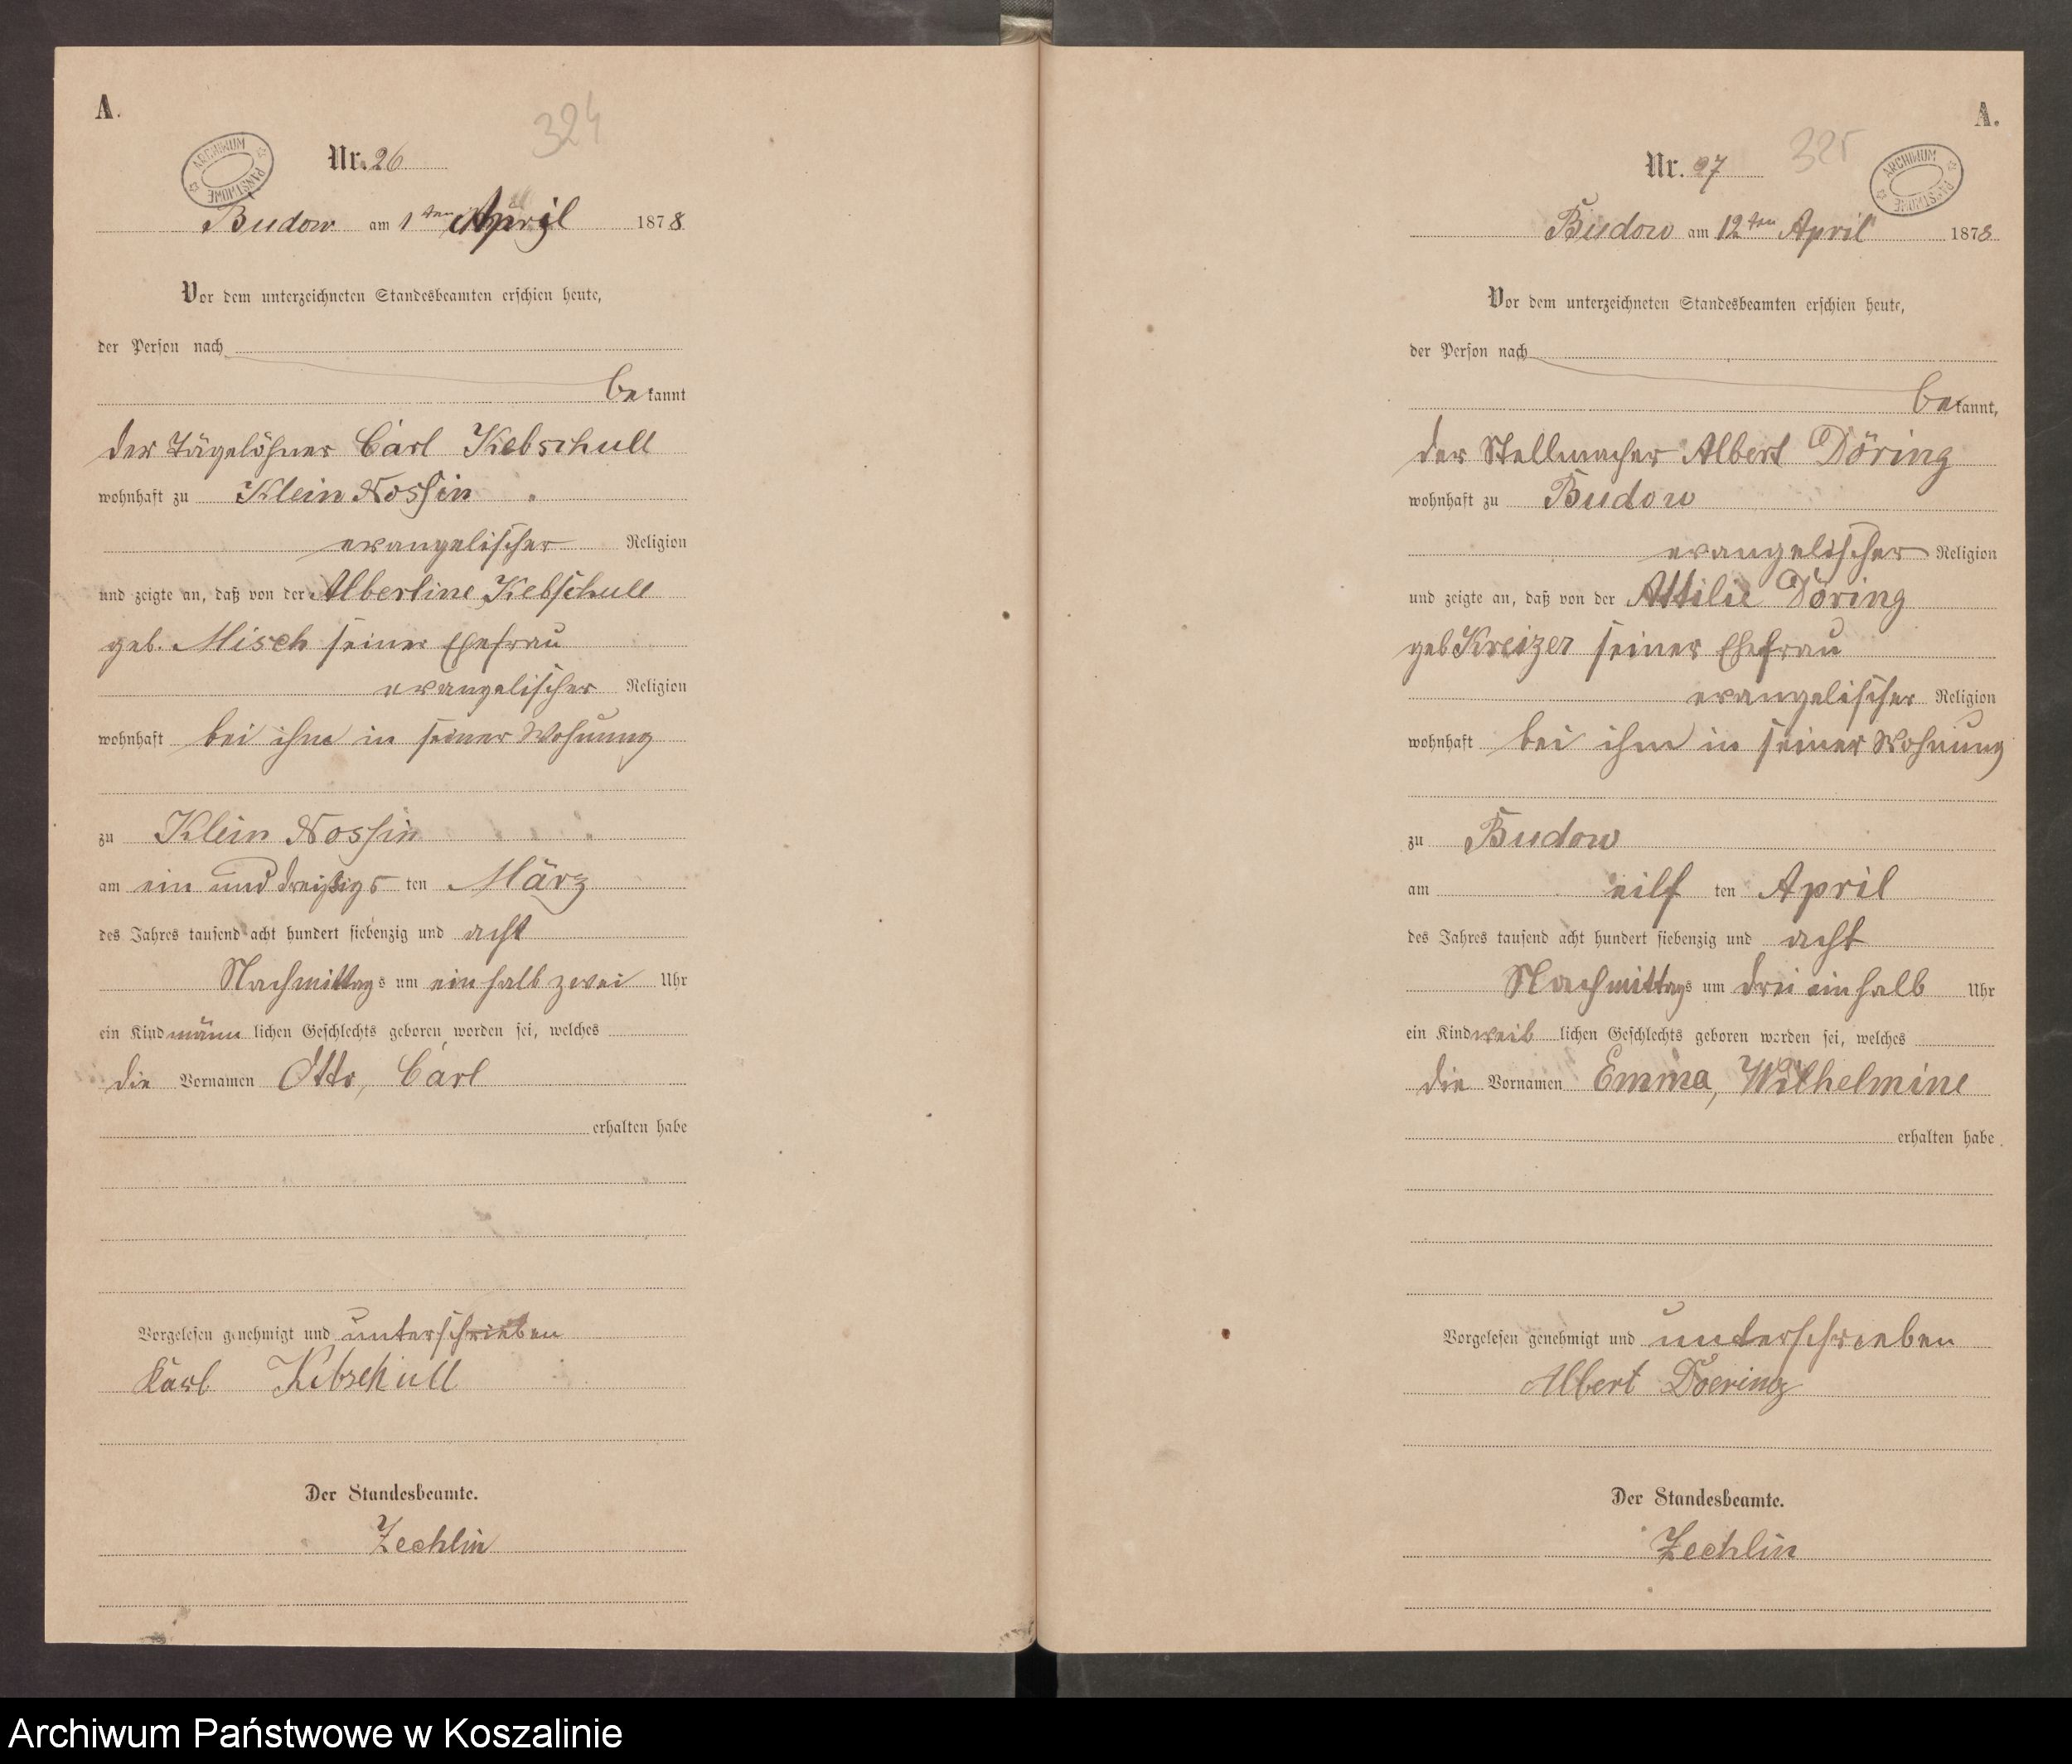 A.
324
ARCHIWUM PAŃSTWOWE
Nr. 26
Budow am 1ten April 1878
Vor dem unterzeichneten Standesbeamten erschien heute,
der Person nach
bekannt
der Tägelöhner Carl Kebschull
wohnhaft zu Klein Nossin
evangelischer Religion
und zeigte an, daß von der Albertine Kebschull
geb. Misch seiner Ehefrau
evangelischer Religion
wohnhaft bei ihm in seiner Wohnung
zu Klein Nossin
am ein und dreißigs ten März
des Jahres tausend acht hundert siebenzig und acht
Nachmittags um ein halb zwei Uhr
ein Kind männlichen Geschlechts geboren worden sei, welches
die Vornamen Otto, Carl
erhalten habe
Vorgelesen genehmigt und unterschrieben
Karl Kebschull
Der Standesbeamte.
Zechlin
A.
325
ARCHIWUM PAŃSTWOWE
Nr. 27
Budow am 12ten April 1878
Vor dem unterzeichneten Standesbeamten erschien heute,
der Person nach
bekannt,
der Stellmacher Albert Döring
wohnhaft zu Budow
evangelischer Religion
und zeigte an, daß von der Attilie Döring
geb Kreizer seiner Ehefrau
evangelischer Religion
wohnhaft bei ihm in seiner Wohnung
zu Budow
am eilf ten April
des Jahres tausend acht hundert siebenzig und acht
Nachmittags um drei einhalb Uhr
ein Kind weiblichen Geschlechts geboren worden sei, welches
die Vornamen Emma, Wilhelmine
erhalten habe
Vorgelesen genehmigt und unterschrieben
Albert Doering
Der Standesbeamte.
Zechlin
Archiwum Państwowe w Koszalinie